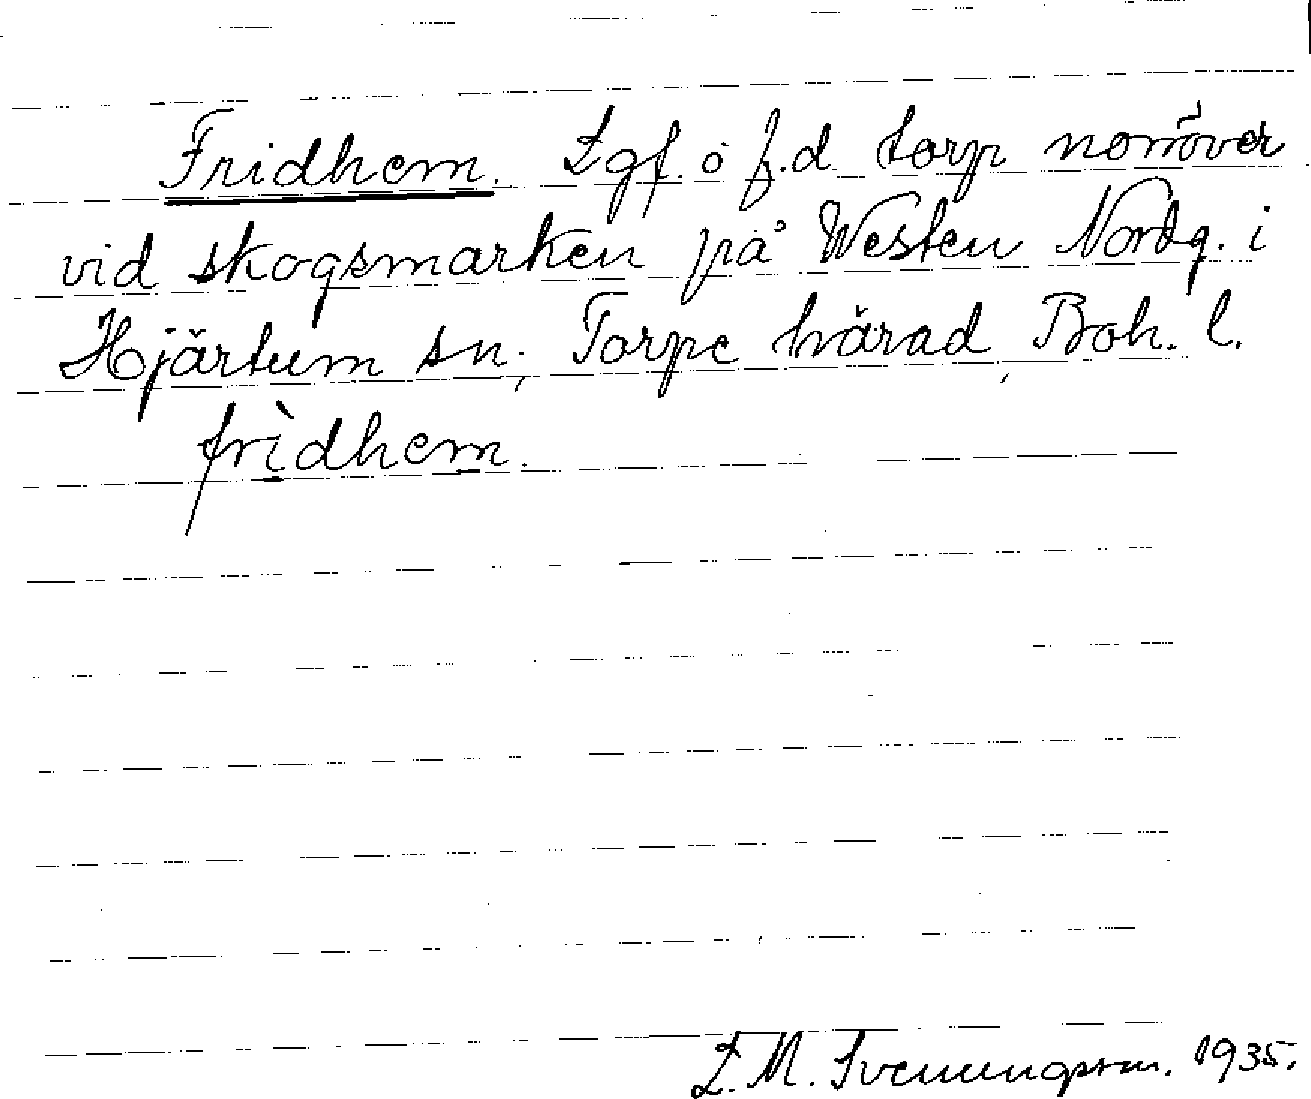 Fridhem. Lgf. o f.d. torp norröver
vid skogsmarken på Westen Nordg. i
Hjärtum sn, Torpe härad, Boh. l.
frìdhem.
L. M. Svenungsson. 1935.